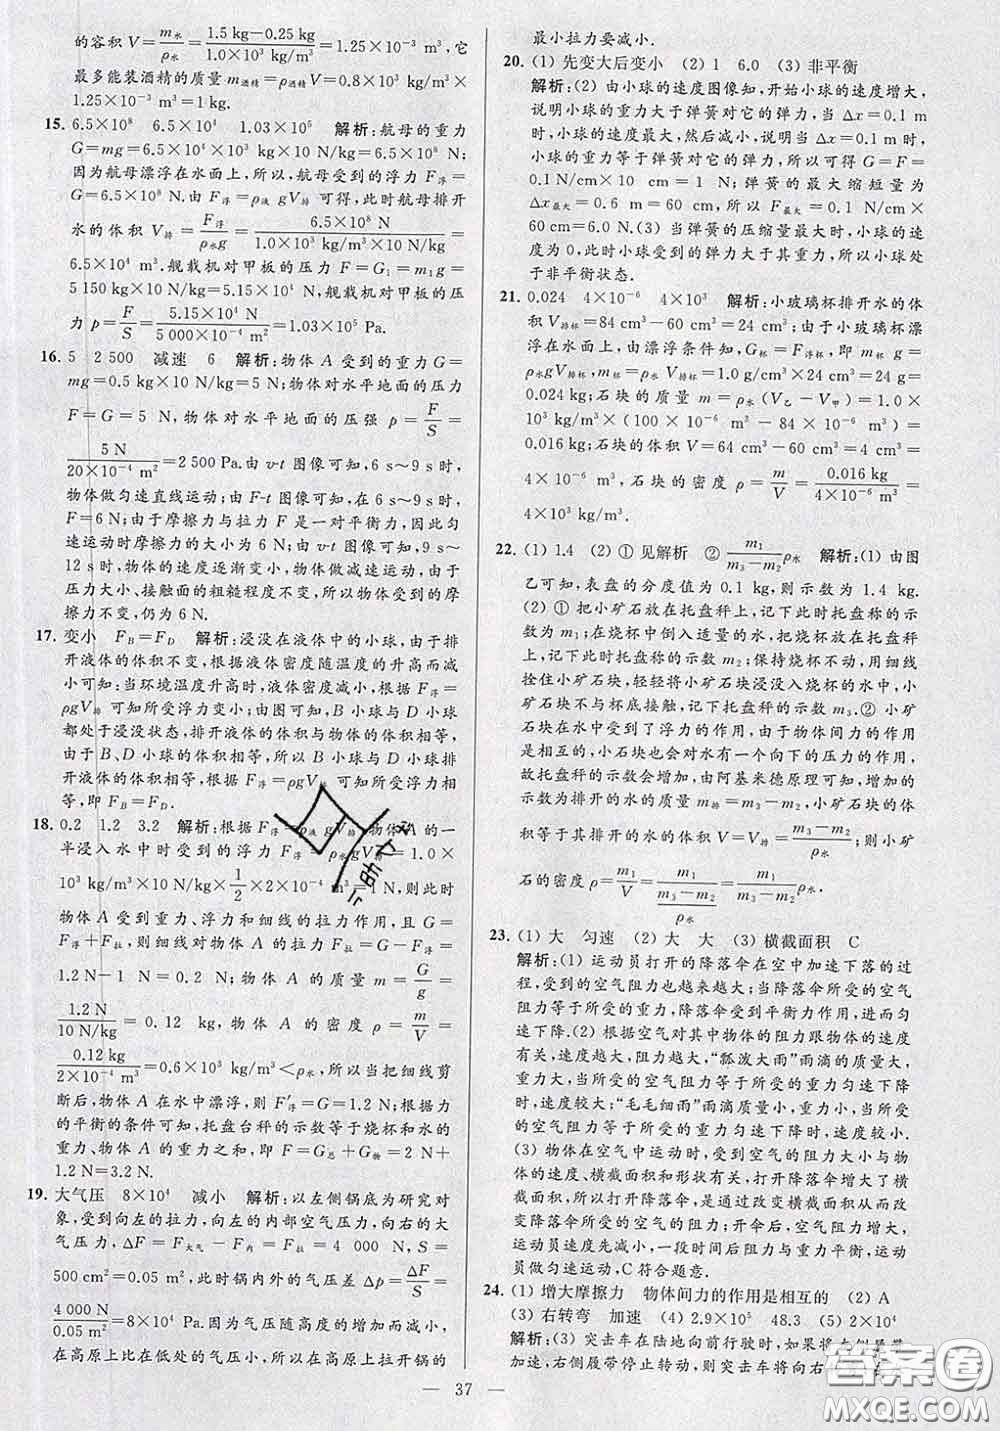 的容积 V=m水/ρ水=(1.5 kg-0.25 kg)/(1.0×10³ kg/m³)=1.25×10⁻³ m³,它
最多能装酒精的质量 m酒精=ρ酒精V=0.8×10³ kg/m³×
1.25×10⁻³ m³=1 kg.
15. 6.5×10⁸ 6.5×10⁴ 1.03×10⁵ 解析:航母的重力
G=mg=6.5×10⁴×10³ kg×10 N/kg=6.5×10⁸ N;
因为航母漂浮在水面上,所以,航母受到的浮力 F浮=
G=6.5×10⁸ N;由 F浮=ρ液 gV排 可得,此时航母排开
水的体积 V排=F浮/ρ水g=(6.5×10⁸ N)/(1.0×10³ kg/m³×10 N/kg)=
6.5×10⁴ m³.舰载机对甲板的压力 F=G₁=m₁g=
5 150 kg×10 N/kg=5.15×10⁴ N,舰载机对甲板的压
力 p=F/S=(5.15×10⁴ N)/(5 000×10⁻⁴ m²)=1.03×10⁵ Pa.
16. 5 2 500 减速 6 解析:物体 A 受到的重力 G=
mg=0.5 kg×10 N/kg=5 N;物体对水平地面的压力
F=G=5 N,物体对水平地面的压强 p=F/S=
(5 N)/(20×10⁻⁴ m²)=2 500 Pa.由 v-t 图像可知,6 s~9 s时,
物体做匀速直线运动;由 F-t 图像可知,在 6 s~9 s 时,
F=6 N;由于摩擦力与拉力 F 是一对平衡力,因此匀
速运动时摩擦力的大小为 6 N;由 v-t 图像可知,9 s~
12 s 时,物体的速度逐渐变小,物体做减速运动,由于
压力大小、接触面的粗糙程度不变,所以物体受到的摩
擦力不变,仍为 6 N.
17. 变小 F_B=F_D 解析:浸没在液体中的小球,由于排
开液体的体积不变,根据液体密度随温度的升高而减
小可知:当环境温度升高时,液体密度减小,根据 F浮=
ρgV排 可知所受浮力变小;由图可知,B 小球与 D 小球
都处于浸没状态,排开液体的体积与物体的体积相等,
由于 B、D 小球的体积相等,所以 B 小球与 D 小球排
开液体的体积相等,根据 F浮=ρgV排 可知所受浮力相
等,即 F_B=F_D.
18. 0.2 1.2 3.2 解析:根据 F浮=ρ液 gV排,物体 A 的一
半浸入水中时受到的浮力 F浮=ρ水gV排=1.0×
10³ kg/m³×10 N/kg×1/2×2×10⁻⁴ m³=1 N,则此时
物体 A 受到重力、浮力和细线的拉力作用,且 G=
F浮+F拉,则细线对物体 A 的拉力 F拉=G-F浮=
1.2 N-1 N=0.2 N;物体 A 的质量 m=G/g=
(1.2 N)/(10 N/kg)=0.12 kg,物体 A 的密度 ρ=m/V=
(0.12 kg)/(2×10⁻⁴ m³)=0.6×10³ kg/m³<ρ水,所以当把细线剪
断后,物体 A 在水中漂浮,则 F′浮=G=1.2 N;根据力
的平衡的条件可知,托盘台秤的示数等于烧杯和水的
重力、物体 A 的重力之和,即 F=G总+G物=2 N+
1.2 N=3.2 N.
19. 大气压 8×10⁴ 减小 解析:以左侧锅底为研究对
象,受到向左的拉力,向左的内部空气压力,向右的大
气压力,ΔF=F大气-F内=F拉=4 000 N,S=
500 cm²=0.05 m²,此时锅内外的气压差 Δp=ΔF/S=
(4 000 N)/(0.05 m²)=8×10⁴ Pa.因为气压随高度的增加而减小,
在高原上比在低处的气压小,所以在高原上拉开锅的
最小拉力要减小.
20. (1) 先变大后变小 (2) 1 6.0 (3) 非平衡
解析:(2) 由小球的速度图像知,开始小球的速度增大,
说明小球的重力大于弹簧对它的弹力,当 Δx=0.1 m
时,小球的速度最大,然后减小,说明当 Δx=0.1 m时,
小球的重力等于弹簧对它的弹力,所以可得 G=F=
0.1 N/cm×10 cm=1 N;弹簧的最大缩短量为
Δx最大=0.6 m=60 cm,所以 F最大=0.1 N/cm
×60 cm=6.0 N.(3) 当弹簧的压缩量最大时,小球的速
度为 0,此时小球受到的弹力大于其重力,所以小球处
于非平衡状态.
21. 0.024 4×10⁻⁶ 4×10³ 解析:小玻璃杯排开水的体
积 V排杯=84 cm³-60 cm³=24 cm³;由于小玻璃杯漂
浮在水面上,由漂浮条件知,G杯=F浮杯,即 m杯 g=
ρ水gV排杯,m杯=ρ水 V排杯=1.0 g/cm³×24 cm³=24 g=
0.024 kg;石块的质量 m=ρ水(V乙-V甲)=1.0×
10³ kg/m³×(100×10⁻⁶ m³-84×10⁻⁶ m³)=
0.016 kg;石块的体积 V=64 cm³-60 cm³=4 cm³=
4×10⁻⁶ m³,石块的密度 ρ=m/V=(0.016 kg)/(4×10⁻⁶ m³)=
4×10³ kg/m³.
22. (1) 1.4 (2) ① 见解析 ② m₁/(m₃-m₂)ρ水 解析:(1) 由图
乙可知,表盘的分度值为 0.1 kg,则示数为 1.4 kg.
(2) ① 把小矿石放在托盘秤上,记下此时托盘称的示
数为 m₁;在烧杯中倒入适量的水,把烧杯放在托盘秤
上,记下此时托盘称的示数 m₂;保持烧杯不动,用细线
拴住小矿石块,轻轻将小矿石块浸没入烧杯的水中,小
矿石块不与杯底接触,记下托盘秤的示数 m₃.② 小矿
石块在水中受到了浮力的作用,由于物体间力的作用
是相互的,小石块也会对水有一个向下的压力的作用,
故托盘秤的示数会增加,由阿基米德原理可知,增加的
示数为排开的水的质量 m排=m₃-m₂,小矿石块的体
积等于其排开的水的体积 V=V排=(m₃-m₂)/ρ水;则小矿
石的密度 ρ=m₁/V=m₁/((m₃-m₂)/ρ水)=m₁/(m₃-m₂)ρ水.
23. (1) 大 匀速 (2) 大 大 (3) 横截面积 C
解析:(1) 运动员打开的降落伞在空中加速下落的过
程,受到的空气阻力也越来越大;当降落伞所受的空气
阻力等于所受的重力,降落伞受到平衡力作用,进而匀
速下降.(2) 根据空气对其中物体的阻力跟物体的速度
有关,速度越大,阻力越大,“瓢泼大雨”雨滴的质量大,
重力大,当所受的空气阻力等于所受的重力匀速下降
时,速度较大;“毛毛细雨”雨滴质量小,重力小,当所受
的空气阻力等于所受的重力匀速下降时,速度较小.
(3) 物体在空气中运动时,受到空气的阻力的大小与它
的速度、横截面积和形状有关,相同条件下横截面积越
大阻力越大,所以降落伞是通过改变横截面积从而改
变降落伞的空气的阻力;开伞后,空气阻力增大,
运动员速度先减小,一段时间后阻力与重力平衡,运动
员做匀速运动,C 符合题意.
24. (1) 增大摩擦力 物体间力的作用是相互的 (2) A
(3) 右转弯 加速 (4) 2.9×10⁵ 48.3 (5) 2×10⁴
解析:(3) 突击车在陆地向前行驶时,如果将左侧履带
加速,右侧履带停止转动,则突击车将向右
37
答案圈
MXQE.COM